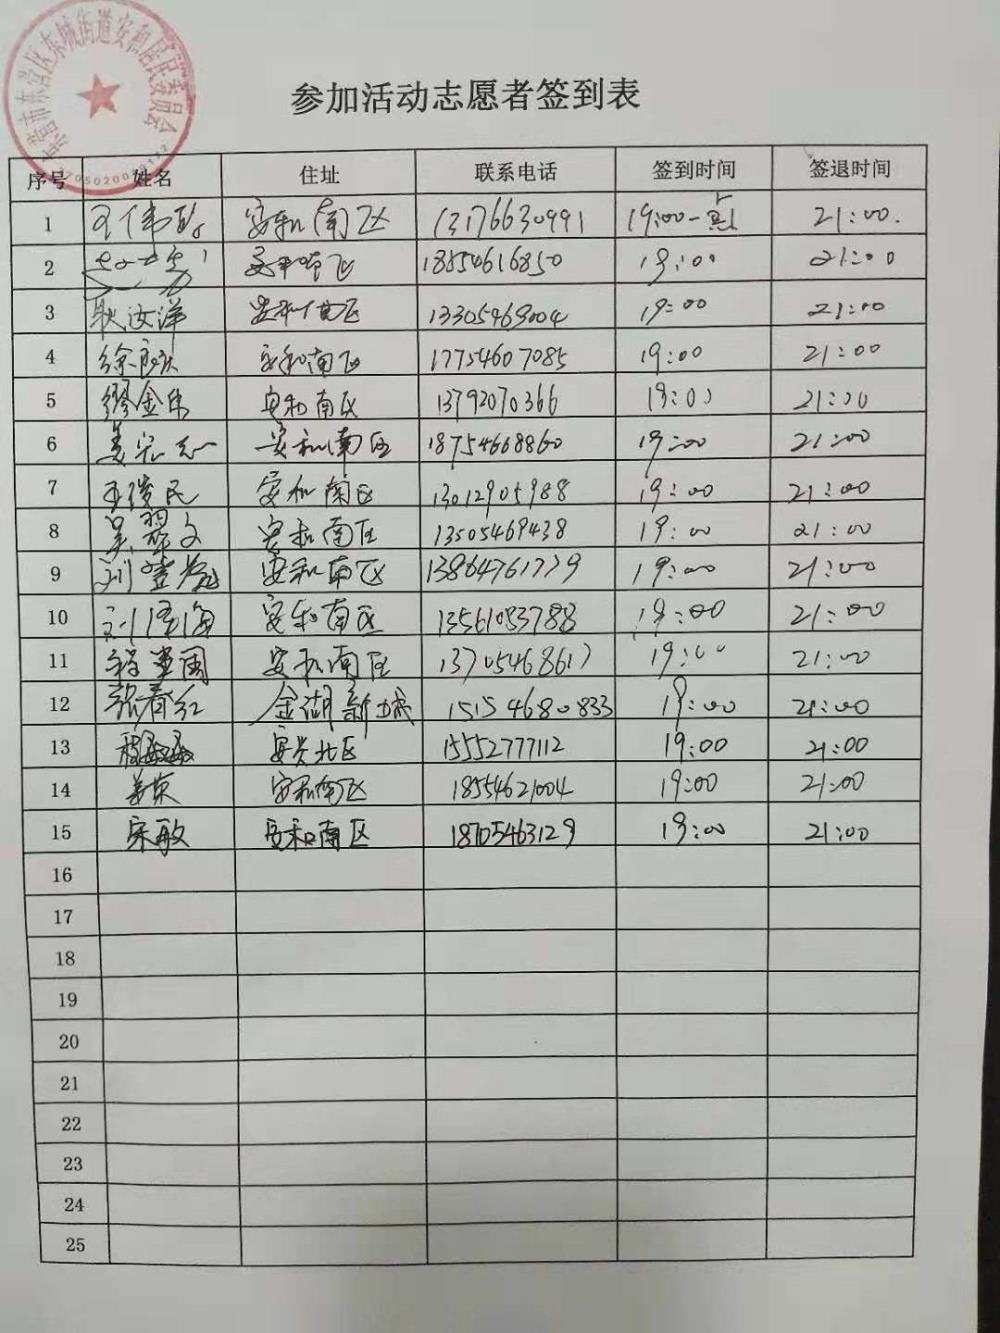 东营市东营区东城街道安和居民委员会
参加活动志愿者签到表
序号 姓名 住址 联系电话 签到时间 签退时间
1 安和南区 13176630991 19:00 21:00.
2 18554616850 19:00 21:00
3 耿汝洋 13305469004 19:00 21:00
4 安和南区 17754607085 19:00 21:00
5 缪金 安和南区 13792070366 19:00 21:00
6 姜宏志 安和南区 18754668860 19:00 21:00
7 王俊民 安和南区 13012905988 19:00 21:00
8 吴翠文 安和南区 13505469438 19:00 21:00
9 安和南区 13864761779 19:00 21:00
10 安和南区 13561053788 19:00 21:00
11 安和南区 13705468617 19:00 21:00
12 张春红 金湖新城 15154680833 19:00 21:00
13 15552777112 19:00 21:00
14 安和南区 18554621004 19:00 21:00
15 宋敏 安和南区 18705463129 19:00 21:00
16
17
18
19
20
21
22
23
24
25